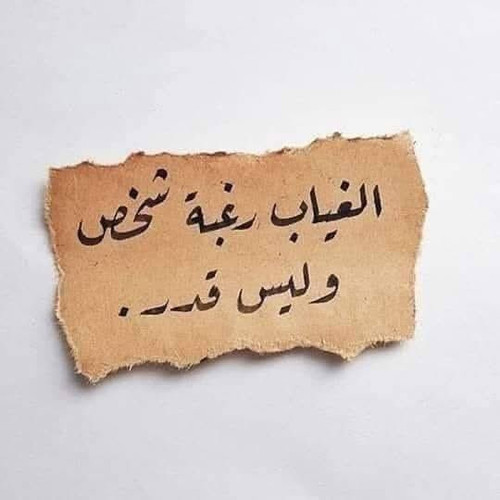 الغياب رغبة شخص
وليس قدر .